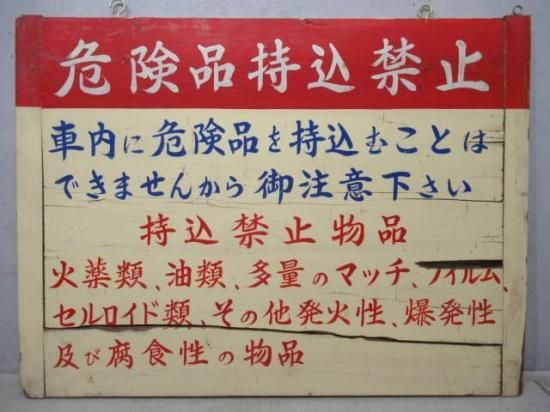 危険品持込禁止
車内に危険品を持込むことは
できませんから御注意下さい
持込禁止物品
火薬類、油類、多量のマッチ、フィルム、
セルロイド類、その他発火性、爆発性
及び腐食性の物品